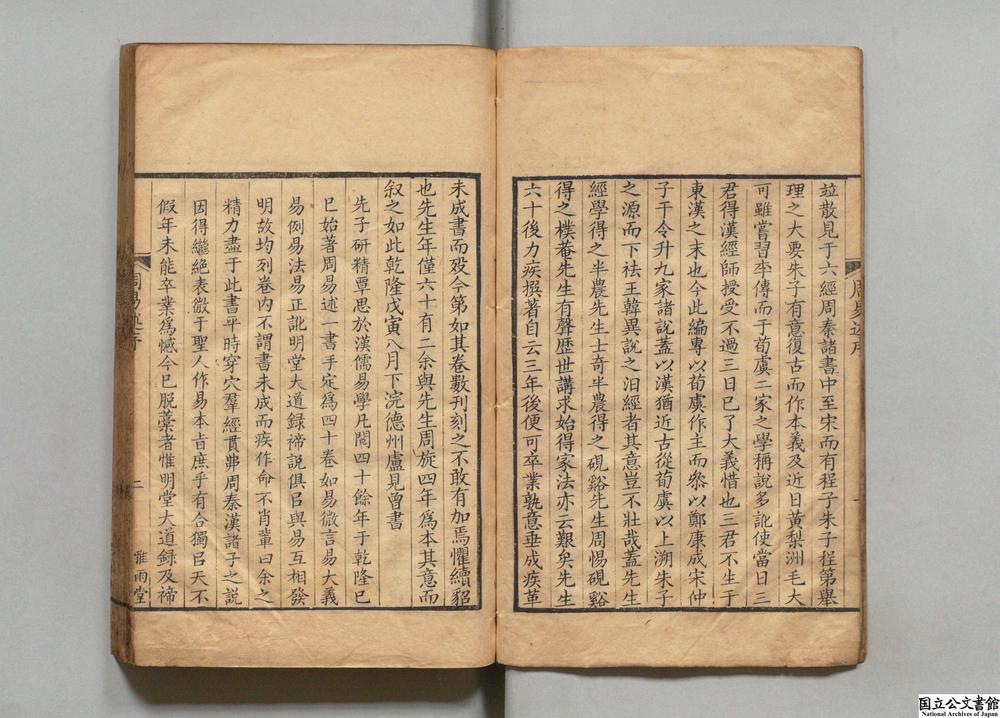 竝散見于六經周秦諸書中至宋而有程子朱子程第舉
理之大要朱子有意復古而作本義及近日黄梨洲毛大
可雖嘗習李傳而于荀虞二家之學稱說多訛使當日三
君得漢經師授受不過三日已了大義惜也三君不生于
東漢之末也今此編專以荀虞作主而叅以鄭康成宋仲
子干令升九家諸說蓋以漢猶近古從荀虞以上溯朱子
之源而下祛王韓異說之汩經者其意豈不壯哉蓋先生
經學得之半農先生士奇半農得之硯谿先生周惕硯谿
得之樸菴先生有聲歴世講求始得家法亦云艱矣先生
六十後力疾撰著自云三年後便可卒業孰意垂成疾革
周易述序
未成書而殁今第如其卷數刊刻之不敢有加焉懼續貂
也先生年僅六十有二余與先生周旋四年爲本其意而
叙之如此乾隆戊寅八月下浣德州盧見曾書
先子研精覃思於漢儒易學凡閲四十餘年于乾隆己
巳始著周易述一書手定爲四十卷如易微言易大義
易例易法易正訛明堂大道録禘說俱㠯與易互相發
明故均列卷内不謂書未成而疾作命不肖輩曰余之
精力盡于此書平時穿穴羣經貫弗周秦漢諸子之說
因得繼絶表微于聖人作易本旨庶乎有合獨㠯天不
假年未能卒業爲憾今已脱藁者惟明堂大道録及禘
周易述序
二
雅雨堂
国立公文書館
National Archives of Japan